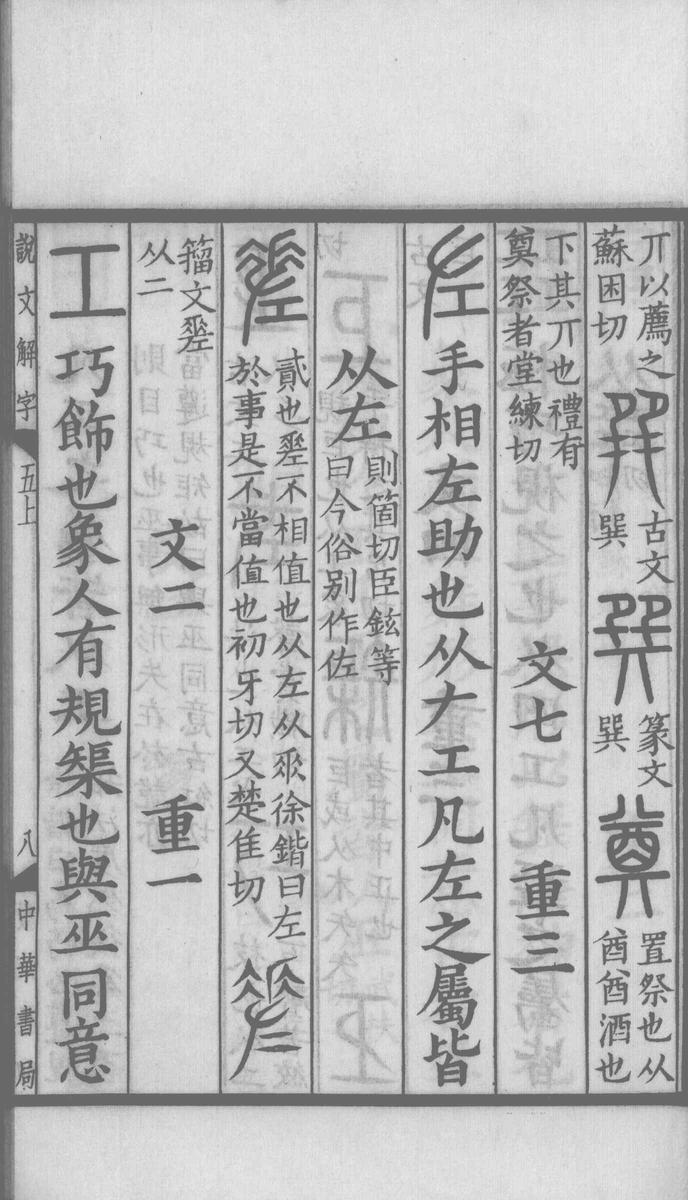 丌以薦之
蘇困切
𢁅
古文
巽
𢁉
篆文
巽
奠
置祭也从
酋酋酒也
下其丌也禮有
奠祭者堂練切
文七 重三
左 手相左助也从𠂇工凡左之屬皆
从左
則箇切臣鉉等
曰今俗別作佐
貳也𢀩不相值也从左从𠂹徐鍇曰左
於事是不當值也初牙切又楚隹切
籀文𢀩
从二
文二 重一
工 巧飾也象人有規榘也與巫同意
說文解字 五上 八 中華書局